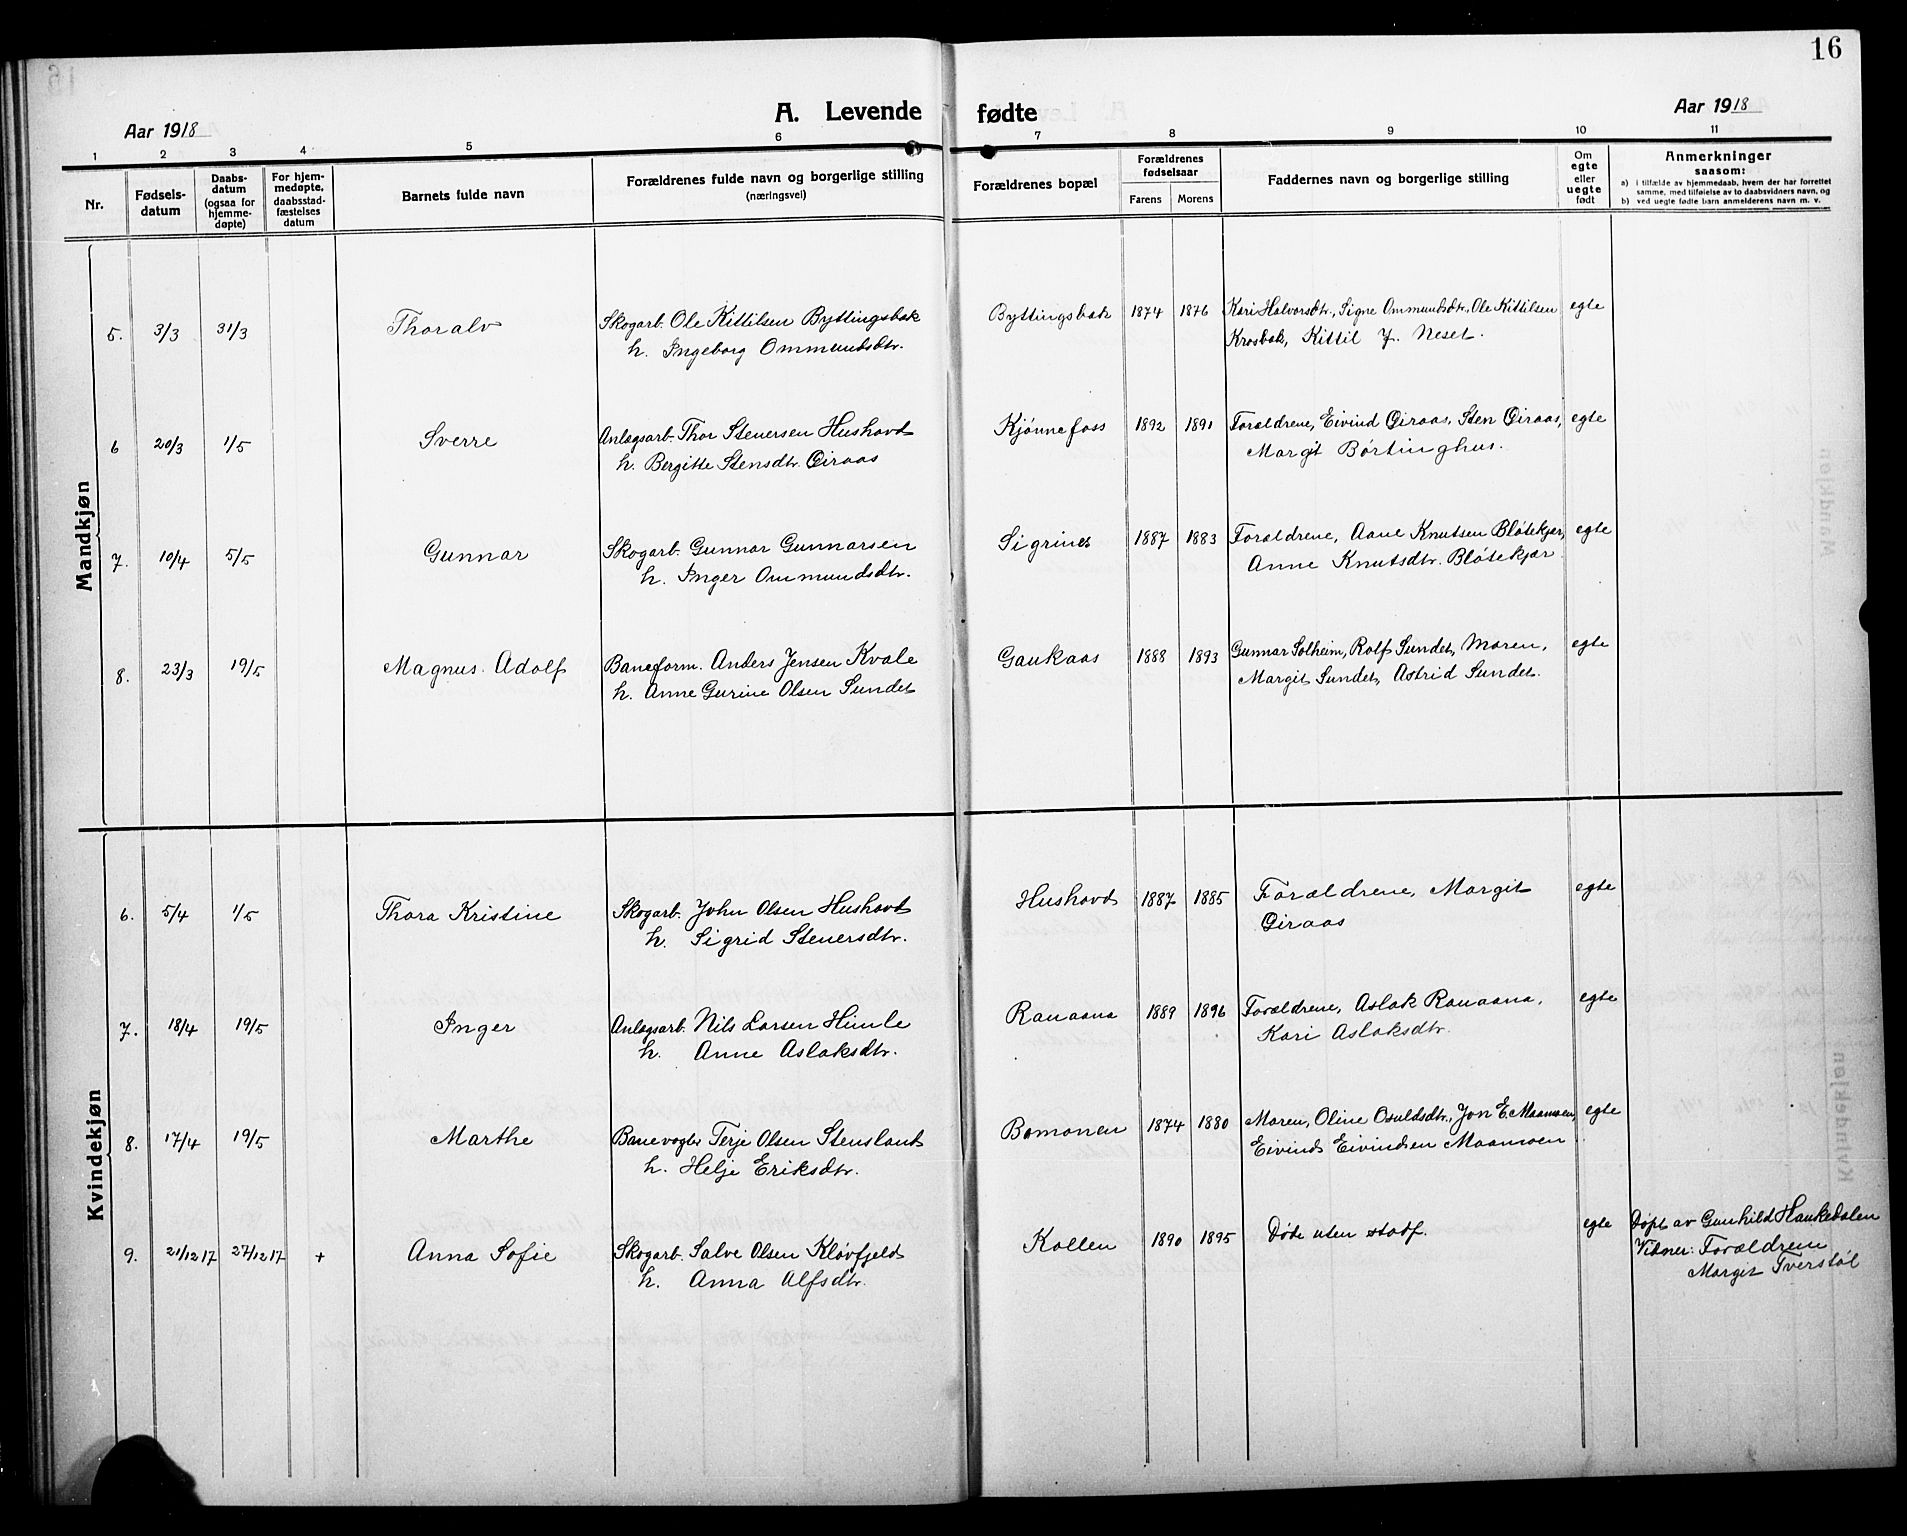 16
A. Levende fødte
Aar 1918
Aar 1918
1 2 3 4 5 6 7 8 9 10 11
Nr.
Fødsels-
datum
Daabs-
datum
(ogsaa for
hjemme-
døpte)
For hjem-
medøpte,
daabsstad-
fæstelses
datum
Barnets fulde navn
Forældrenes fulde navn og borgerlige stilling
(næringsvei)
Forældrenes bopæl
Forældrenes
fødselsaar
Farens Morens
Faddernes navn og borgerlige stilling
Om
egte
eller
uegte
født
Anmerkninger
saasom:
a) i tilfælde av hjemmedaab, hvem der har forrettet
samme, med tilføielse av to daabsvidners navn, og
b) ved uegte fødte barn anmelderens navn m. v.
Mandkjøn
5. 3/3 31/3 Thoralv Skogarb. Ole Kittilsen Byttingsbak Byttingsbak 1874 1876 Kari Halvorsdtr., Signe Ommundsdtr., Ole Kittilsen egte
h. Ingeborg Ommundsdtr. Krosbak, Kittil J. Neset.
6 20/3 1/5 Sverre Anlægsarb. Thor Stenersen Hushovd Kjønnefoss 1892 1891 Forældrene, Eivind Giraas, Sten Giraas, egte
h. Bergitte Stensdtr. Giraas Margit Børtinghus.
7. 10/4 5/5 Gunnar Skogarb. Gunnar Gunnarsen Sigrines 1887 1883 Forældrene, Aane Knutsen Bløtekjær, egte
h. Inger Ommundsdtr. Anne Knutsdtr. Bløtekjær
8. 23/3 19/5 Magnus Adolf Baneform. Anders Jensen Kvale Gaukaas 1888 1893 Gunnar Solheim, Rolf Sundet, Moren, egte
h. Anne Gurine Olsen Sundet Margit Sundet, Astrid Sundet.
Kvindekjøn
6. 5/4 1/5 Thora Kristine Skogarb. John Olsen Hushovd Hushovd 1887 1885 Forældrene, Margit egte
h. Sigrid Stenersdtr. Giraas
7. 18/4 19/5 Inger Anlægsarb. Nils Larsen Himle Ranaana 1889 1896 Forældrene, Aslak Ranaana, egte
h. Anne Aslaksdtr. Kari Aslaksdtr.
8. 17/4 19/5 Marthe Banevogter Terje Olsen Stensland Bomonen 1874 1880 Moren, Oline Osuldsdtr., Jon E. Maamoen, egte
h. Helje Eriksdtr. Eivind Eivindsen Maamoen
9. 21/12 17 27/12 17 + Anna Sofie Skogarb. Salve Olsen Kløvfjeld Kollen 1890 1895 Døde uten stadf. egte Døpt av Gunhild Haukedalen
h. Anna Alfsdtr. Vidner: Forældrene
Margit Tverstøl